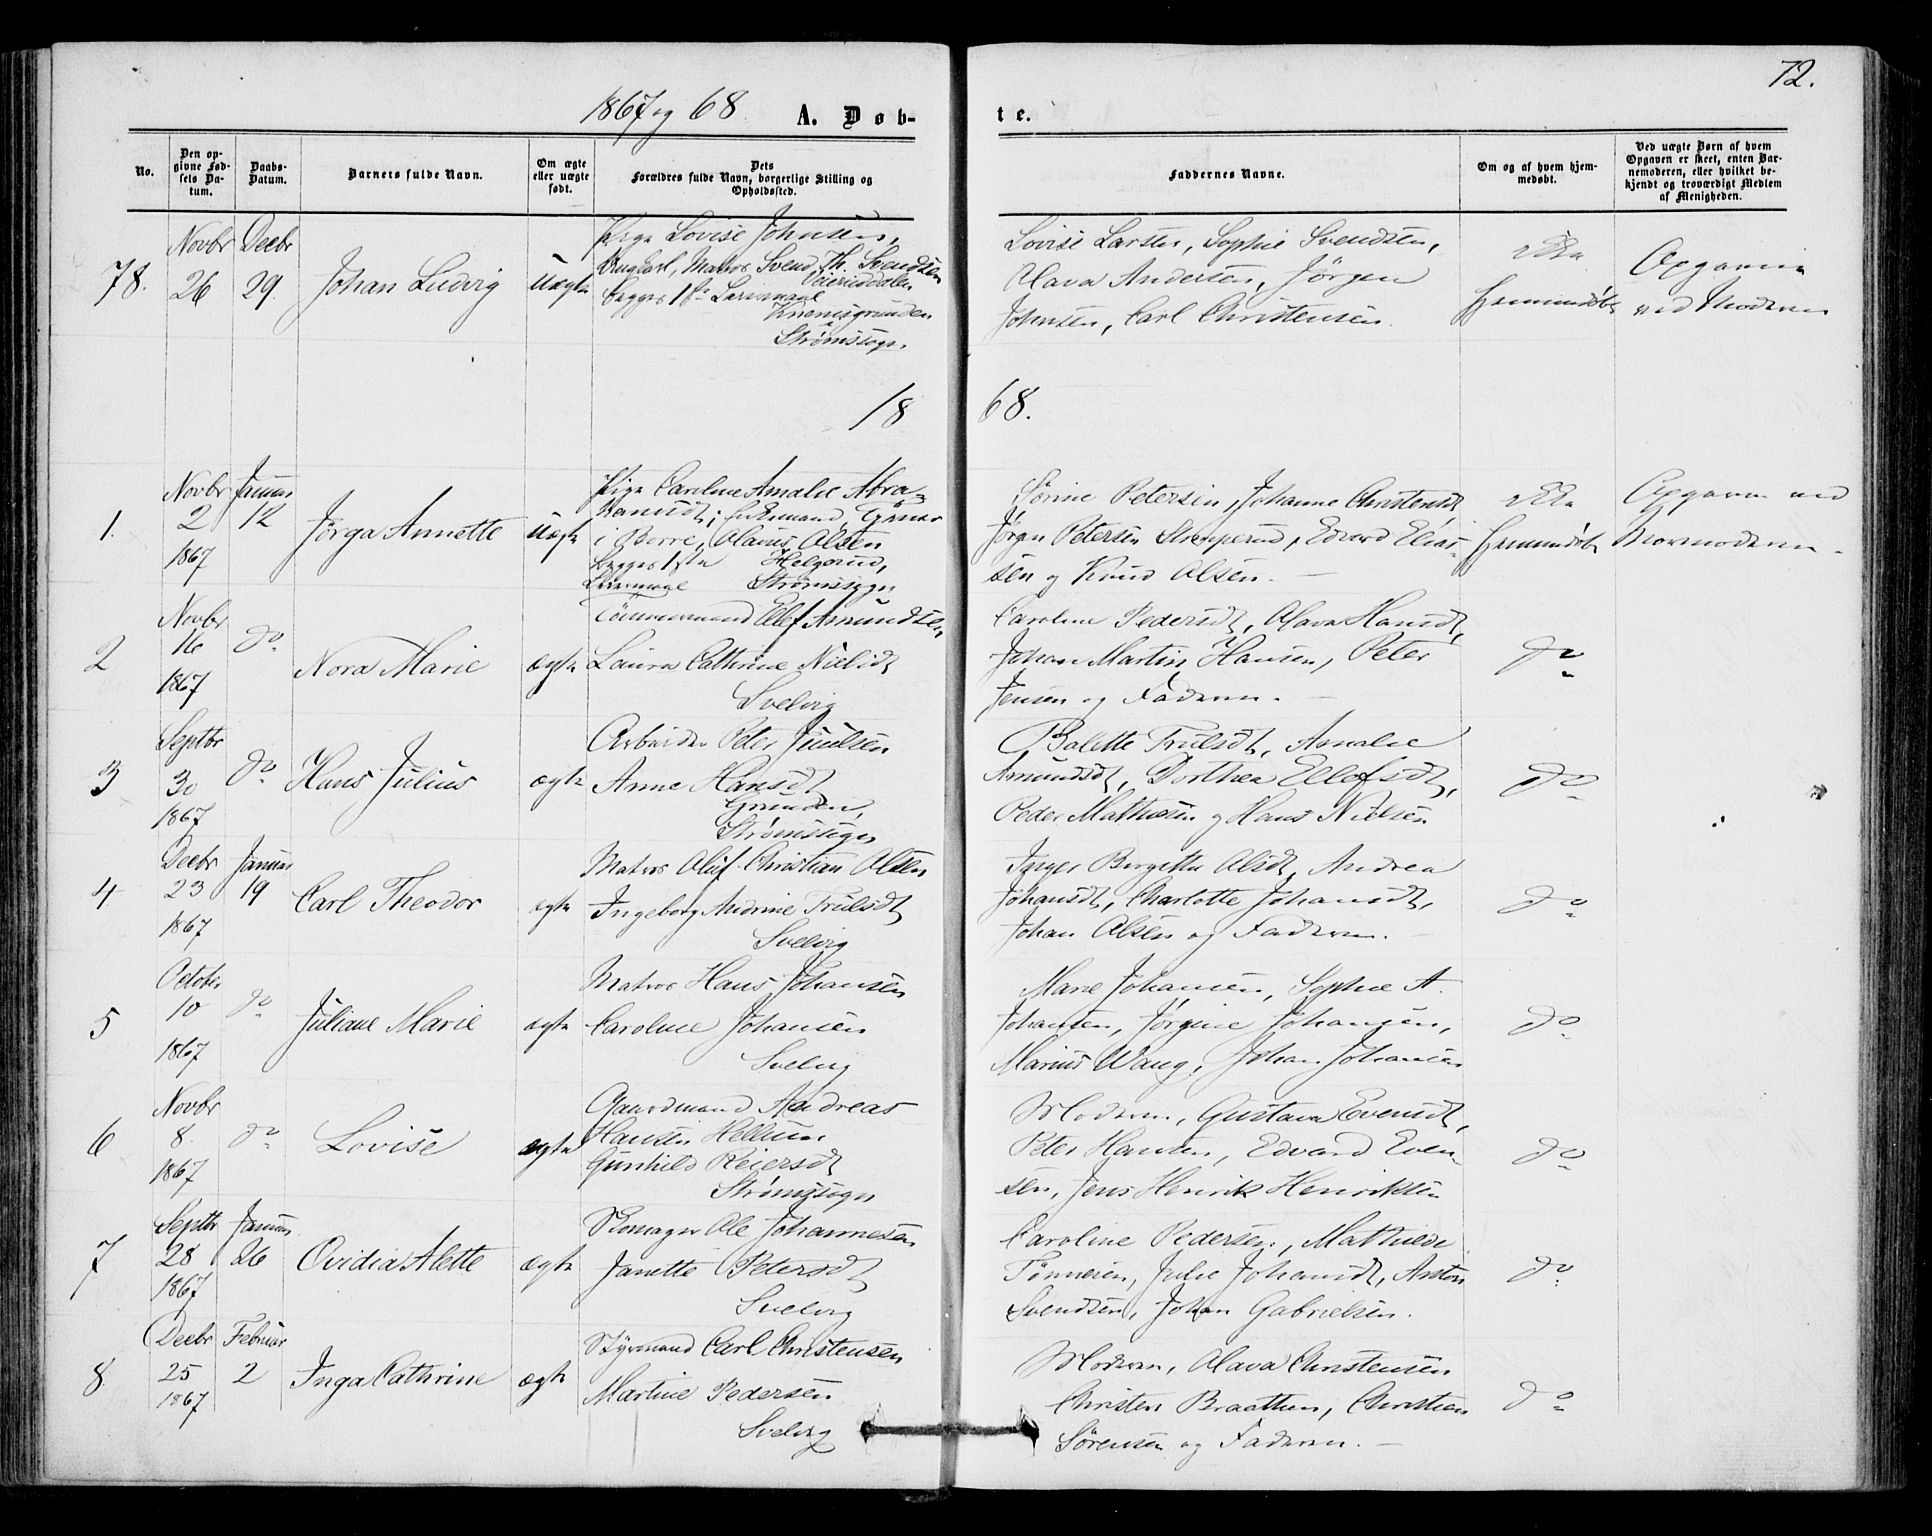 72.
1867 og 68. A. Døb-
te.
No.
Den op-
givne Fød-
sels Da-
tum.
Daabs-
Datum.
Barnets fulde Navn.
Om ægte
eller uægte
født.
Dets
Forældres fulde Navn, borgerlige Stilling og
Opholdssted.
Faddernes Navne.
Om og af hvem hjem-
medøbt.
Ved uægte Børn af hvem
Opgaven er skeet, enten Bar-
nemoderen, eller hvilket be-
kjendt og troværdigt Medlem
af Menigheden.
78.
Novbr
26
Decbr
29.
Johan Ludvig
Uægte
Pige Lovise Johnsen,
Ungkarl, Matros Svend Th. Svendsen
begges 1ste Leiermaal
Strømssogn.
Lovise Larsen, Sophie Svendsen,
Olava Andersen, Jørgen
Johnsen, Carl Christensen.
Ikke
Hjemmedøbt
Opgaven
ved Moderen
1868.
1.
Novbr
2
1867
Januar
12
Jørga Annette
Uægte
Pige Caroline Amalie Abra-
hamsdt;
i Borre, Olaves Olsen
begges 1ste Helgerud,
Leiermaal Strømssogn
Sørine Petersen, Johanne Christensdt,
Jørgen Petersen, Edvard Elias-
sen og Knud Olsen.
Ikke
Hjemmedøbt
Opgaven ved
Mormoderen.
2
Novbr
16
1867
do
Nora Marie
ægte
Tømmermand Ellef Amundsen,
Laura Cathrine Nielsdt
Svelvig
Caroline Pedersdt, Olava Hansdt,
Johan Martin Hansen, Peter
Jensen og Faderen.
do
3
Septbr
30
1867
do
Hans Julius
ægte
Arbeider Peter Juulsen
Anne Hansdt
Grunden,
Strømssogn
Balette Trulsdt, Amalie
Amundsdt, Dorthea Ellefsdt,
Peder Mathisen og Hans Nielsen
do
4
Decbr
23
1867
Januar
19
Carl Theodor
ægte
Matros Oluf Christian Olsen
Ingeborg Andrine Trulsdt
Svelvig
Inger Birgitte Olsdt, Andrea
Johansdt, Charlotte Johansdt,
Johan Olsen og Faderen.
do
5
October
10
1867
do
Juliane Marie
ægte
Matros Hans Johansen
Caroline Johansen
Svelvig
Marie Johansen, Sophie A.
Johansen, Jørgine Johansen,
Marius Wang, Johan Johansen
do
6
Novbr
8.
1867
do
Lovise
ægte
Gaardmand Andreas
Hansen Hellum
Gunhild Reiersdt
Strømssogn
Moderen, Gustava Evensdt,
Peter Hansen, Edvard Even-
sen, Jens Henrik Henriksen
do
7
Septbr
28
1867
Januar
26
Ovidia Alette
ægte
Skomager Ole Johannesen
Janette Petersdt
Svelvig
Caroline Pedersen, Mathilde
Tønnesen, Julie Johansdt, Anton
Svendsen, Johan Gabrielsen.
do
8.
Decbr
25
1867
Februar
2
Inga Cathrine
ægte
Styrmand Carl Christensen
Martine Pedersen
Svelvig
Moderen, Olava Christensen
Christen Braathen, Christian
Sørensen og Faderen.
do